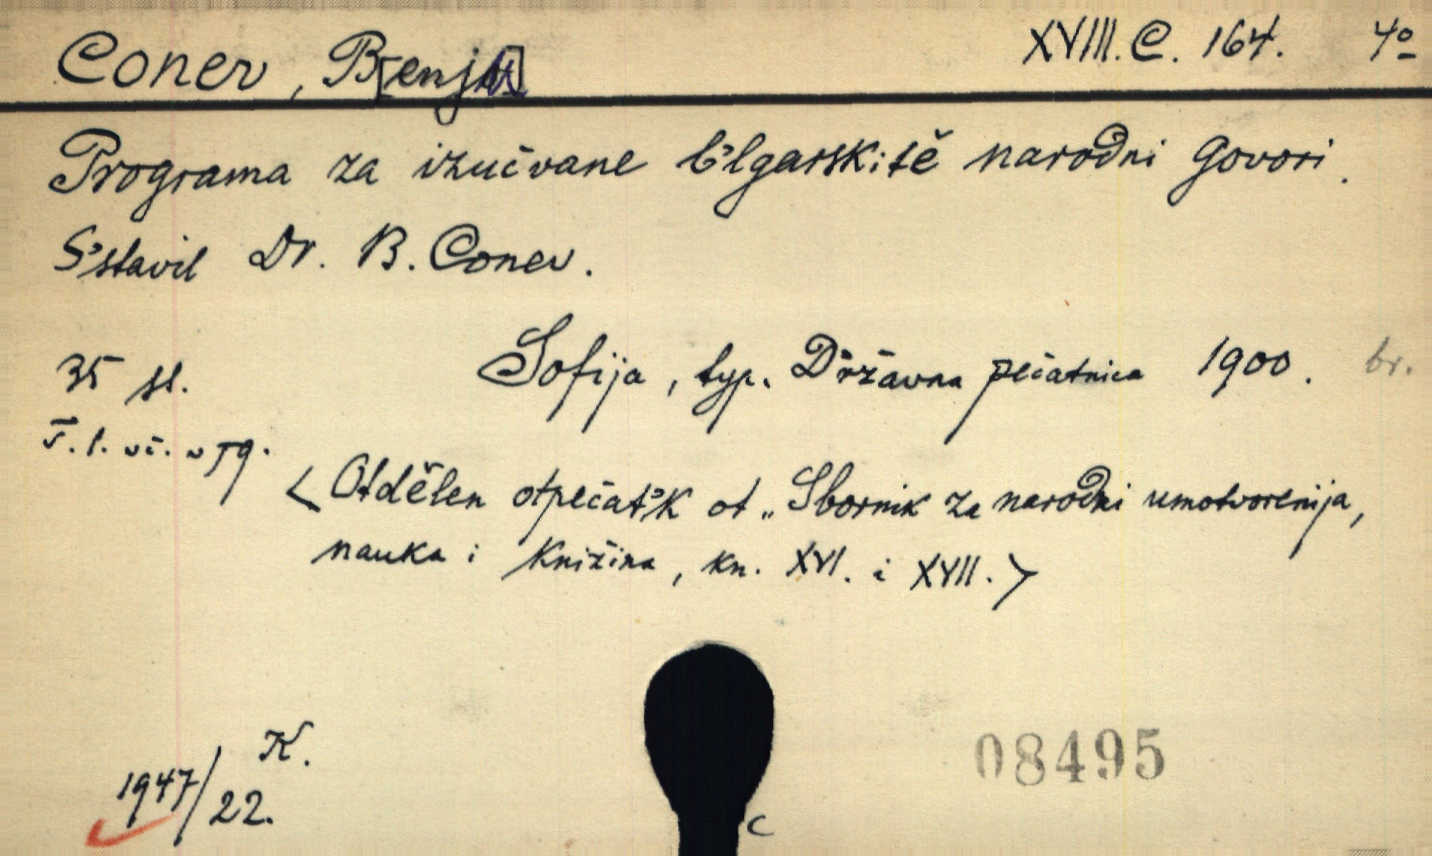 Conev, B[enju] XVIII. C. 164. 4º
Programa za izučvane b'lgarskitě narodni govori.
S'stavil Dr. B. Conev.
35 sl. Sofija, typ. Državna pečatnica 1900. br.
T. l. vč. v pg.
<Otdělen otpečat'k ot „Sbornik za narodni umotvorenija,
nauka i knižina, kn. XVI. i XVII.>
K.
1947/22.
08495
C